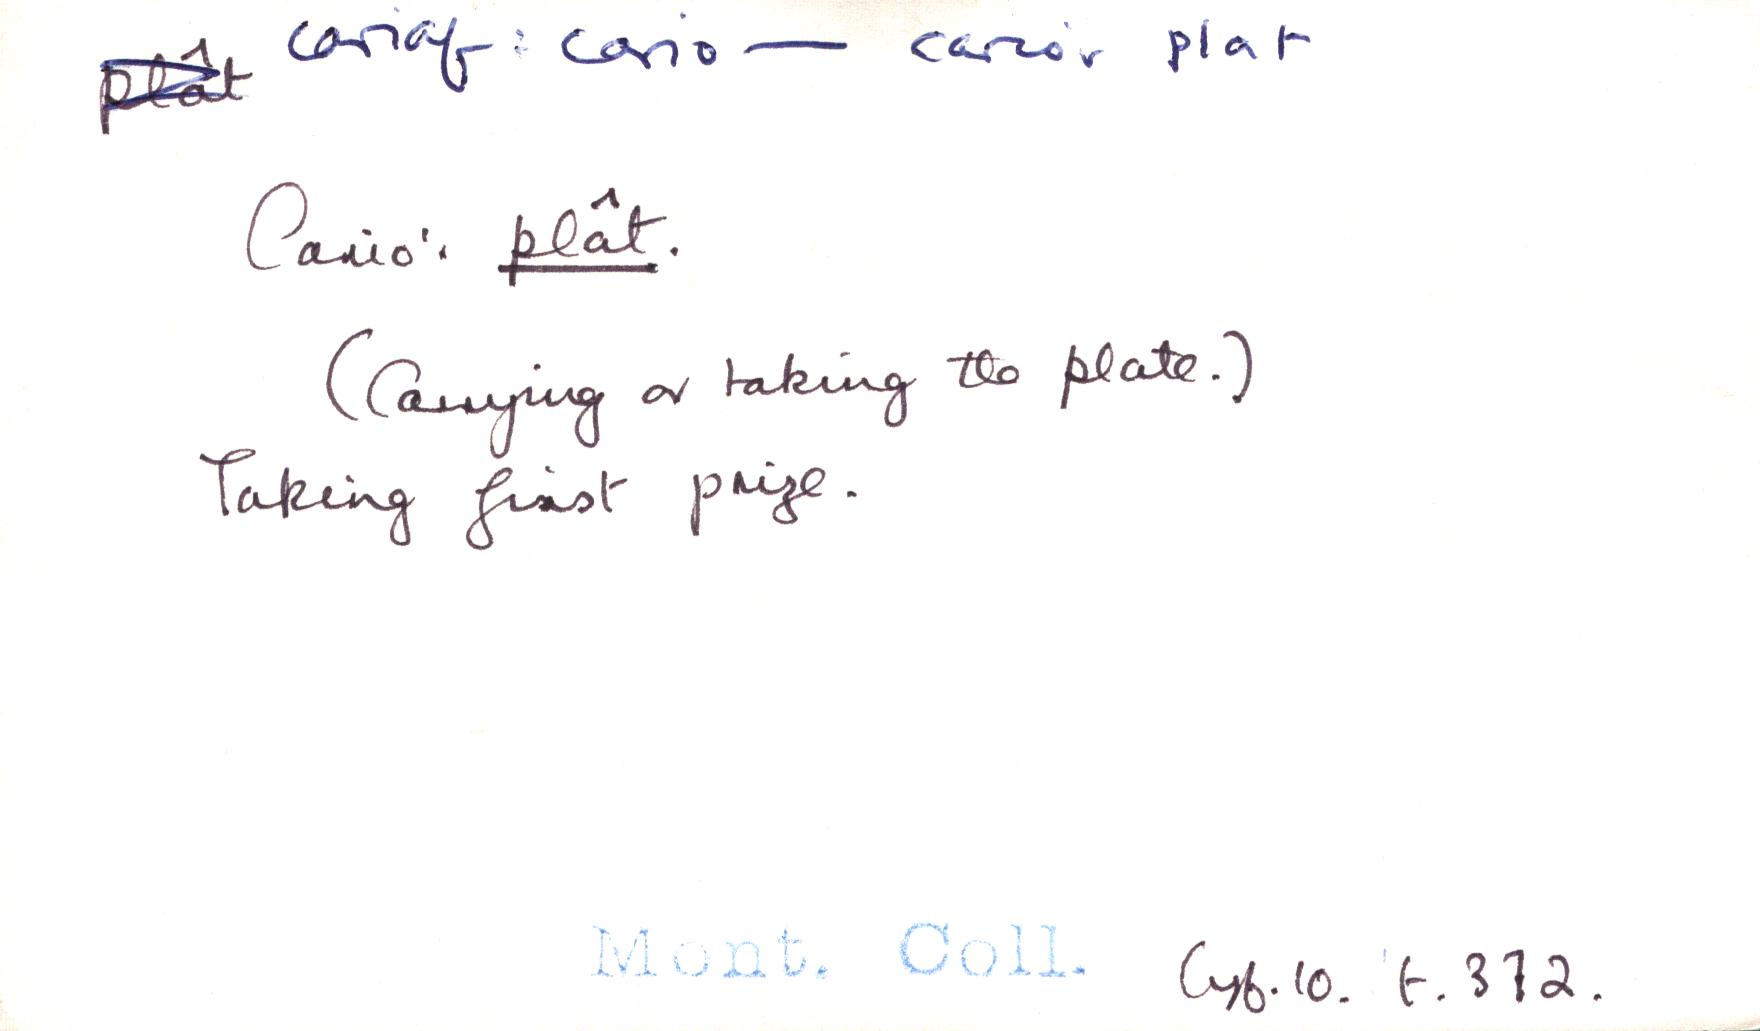 plât cariaf: cario — cario'r plat
Cario'r plât.
(Carrying or taking the plate.)
Taking first prize.
Mont. Coll. Cyf. 10. t. 372.